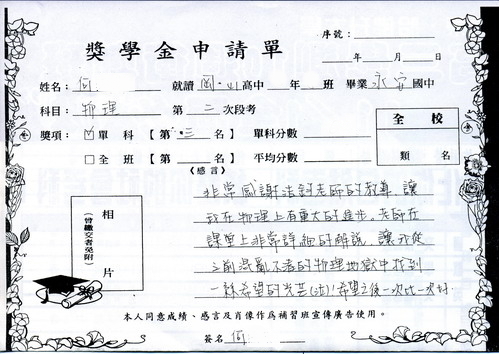 獎學金申請單
序號：
年 月 日
姓名：何 就讀 岡山高中 年 班 畢業 永安國中
科目：物理 第 二 次段考
獎項：☑單科【第 三 名】 單科分數：
□全班【第 名】 平均分數：
全校
類 名
(感言)
相片
(曾繳交者免附)
非常感謝 老師的教導，讓
我在物理上有重大的進步。老師在
課堂上非常詳細的解說，讓我從
之前混亂不清的物理地獄中找到
一絲希望的光芒 希望之後一次比一次好.
本人同意成績、感言及肖像作為補習班宣傳廣告使用。
簽名 何